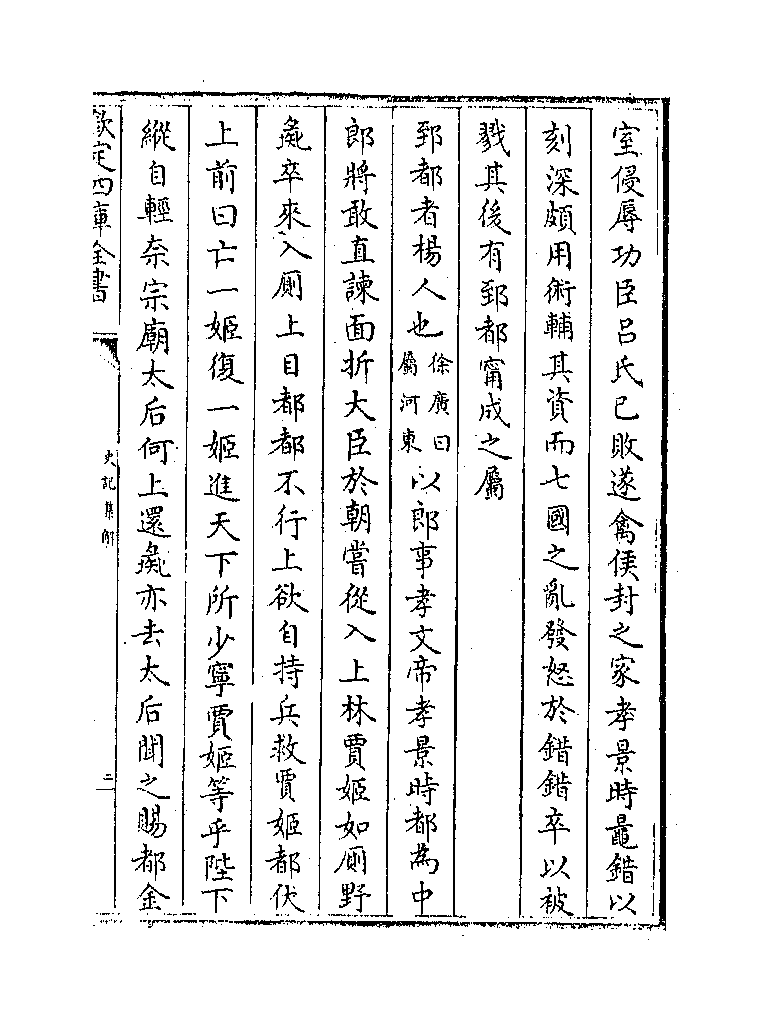 室侵辱功臣呂氏已敗遂禽侯封之家孝景時鼂錯以
刻深頗用術輔其資而七國之亂發怒於錯錯卒以被
戮其後有郅都甯成之屬
郅都者楊人也徐廣曰屬河東以郎事孝文帝孝景時都為中
郎將敢直諫面折大臣於朝嘗從入上林賈姬如厠野
彘卒來入厠上目都都不行上欲自持兵救賈姬都伏
上前曰亡一姬復一姬進天下所少寧賈姬等乎陛下
縱自輕奈宗廟太后何上還彘亦去太后聞之賜都金
欽定四庫全書
史記集解
二